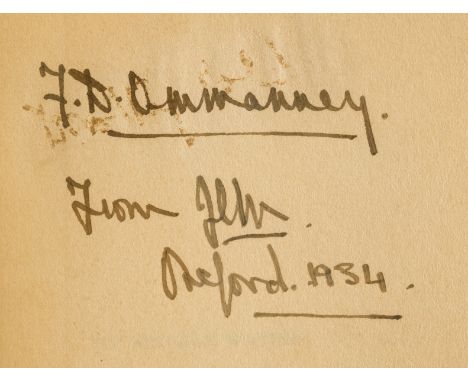 F. D. Ommanney.
From
Oxford. 1934.